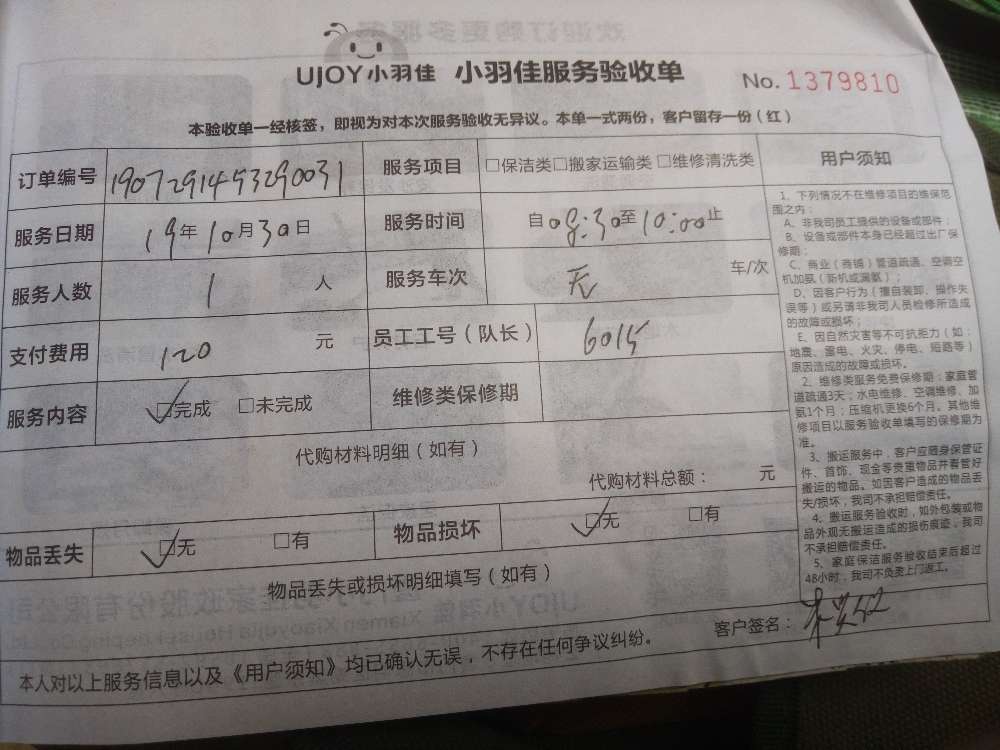 UJOY小羽佳 小羽佳服务验收单 No. 1379810
本验收单一经核签，即视为对本次服务验收无异议。本单一式两份，客户留存一份（红）
订单编号 1907291453290031 服务项目 □保洁类□搬家运输类 □维修清洗类
服务日期 19年10月30日 服务时间 自08:30至10:00止
服务人数 1 人 服务车次 无 车/次
支付费用 120 元 员工工号（队长） 6015
服务内容 ☑完成 □未完成 维修类保修期
代购材料明细（如有）
代购材料总额： 元
物品丢失 ☑无 □有 物品损坏 ☑无 □有
物品丢失或损坏明细填写（如有）
客户签名：
本人对以上服务信息以及《用户须知》均已确认无误，不存在任何争议纠纷。
用户须知
1、下列情况不在维修项目的维保范
围之内：
A、非我司员工提供的设备或部件；
B、设备或部件本身已经超过出厂保
修期；
C、商业（商铺）管道疏通、空调空
机加氨（新机或漏氨）；
D、因客户行为（擅自装卸、操作失
误等）或另请非我司人员检修所造成
的故障或损坏；
E、因自然灾害等不可抗拒力（如：
地震、雷电、火灾、停电、短路等）
原因造成的故障或损坏。
2、维修类服务免费保修期：家庭管
道疏通3天；水电维修、空调维修、加
氨1个月；压缩机更换6个月。其他维
修项目以服务验收单填写的保修期为
准。
3、搬运服务中，客户应随身保管证
件、首饰、现金等贵重物品并看管好
搬运的物品。如因客户造成的物品丢
失/损坏，我司不承担赔偿责任。
4、搬运服务验收时，如外包装或物
品外观无搬运造成的损伤痕迹，我司
不承担赔偿责任。
5、家庭保洁服务验收结束后超过
48小时，我司不负责上门返工。